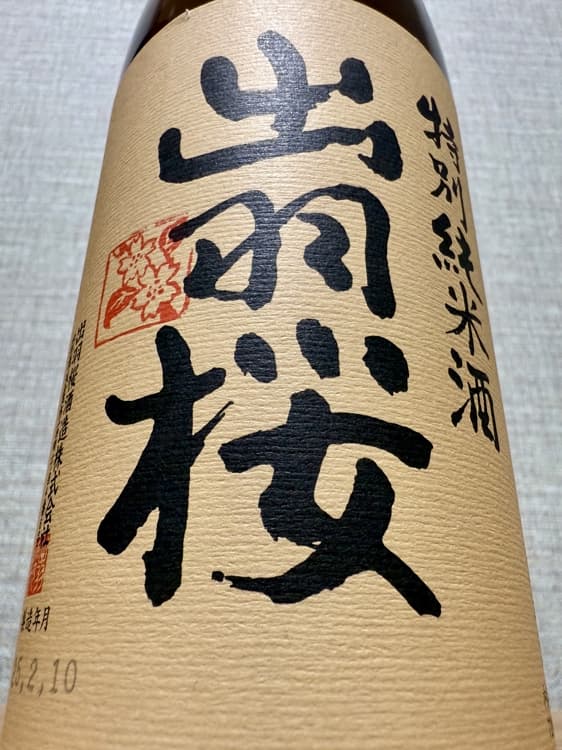 特別純米酒
出羽桜
出羽桜酒造株式会社
製造年月
5,2,10